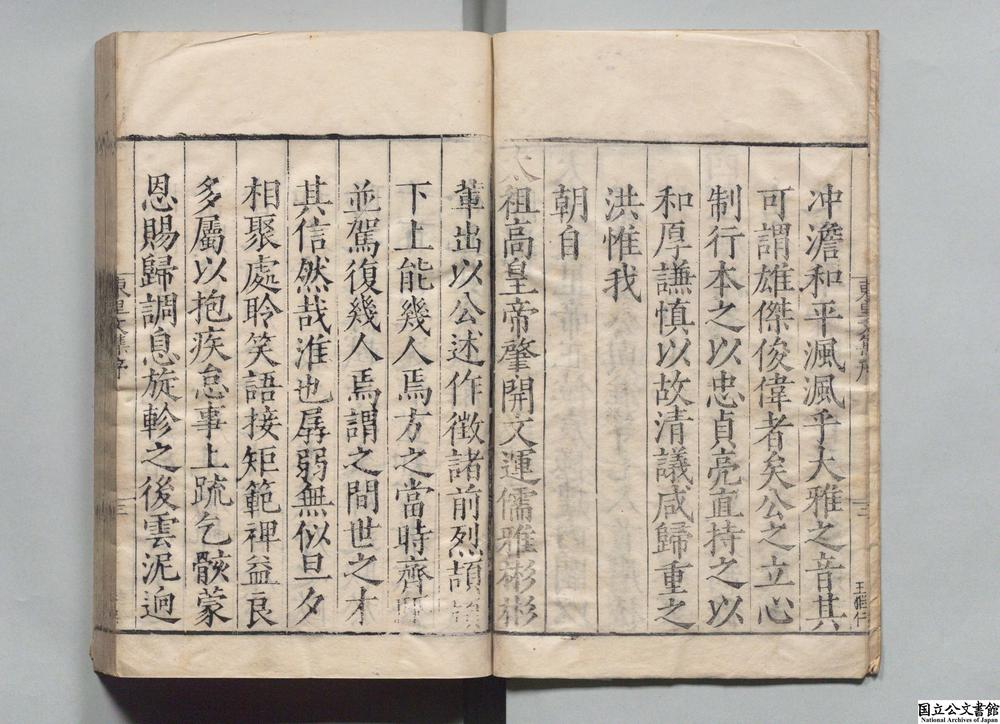 冲澹和平渢渢乎大雅之音其
可謂雄傑俊偉者矣公之立心
制行本之以忠貞亮直持之以
和厚謙慎以故清議咸歸重之
洪惟我
朝自
太祖高皇帝肇開文運儒雅彬彬
輩出以公述作徵諸前烈頡
下上能幾人焉方之當時齊
並駕復幾人焉謂之間世之才
其信然哉淮也孱弱無似旦夕
相聚處聆笑語接矩範裨益良
多屬以抱疾怠事上疏乞骸蒙
恩賜歸調息旋軫之後雲泥逈
東里文集序
三
国立公文書館
National Archives of Japan